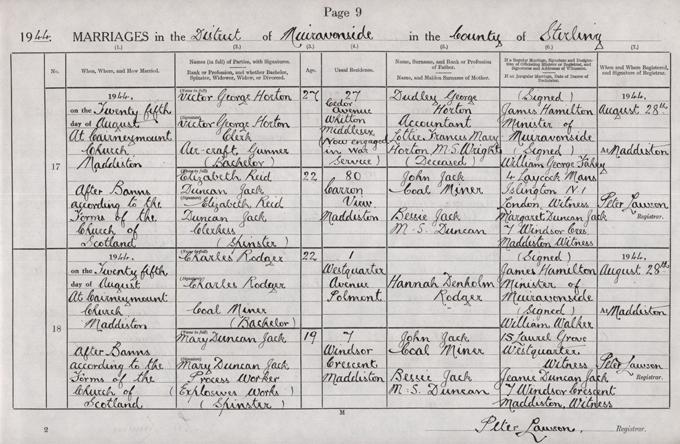 Page 9
1944. MARRIAGES in the District of Muiravonside in the County of Stirling
(1.) (2.) (3.) (4.) (5.) (6.) (7.)
No.
When, Where, and How Married.
Names (in full) of Parties, with Signatures.
Rank or Profession, and whether Bachelor,
Spinster, Widower, Widow, or Divorced.
Age.
Usual Residence.
Name, Surname, and Rank or Profession
of Father.
Name, and Maiden Surname of Mother.
If a Regular Marriage, Signature and Designation
of Officiating Minister or Registrar, and
Signatures and Addresses of Witnesses.
If an Irregular Marriage, Date of Decree of
Declarator.
When and Where Registered,
and Signature of Registrar.
17
1944.
on the Twenty fifth
day of August
At Cairneymount
Church
Maddiston
After Banns
according to the
Forms of the
Church of
Scotland
(Name in full)
Victor George Horton
(Signature)
Victor George Horton
Clerk
Air-craft Gunner
(Bachelor)
27
27
Cedar
Avenue
Whitton
Middlesex
(Now engaged
in War
Service)
Dudley George
Horton
Accountant
Lottie Frances Mary
Horton M.S. Wright
(Deceased)
(Name in full)
Elizabeth Reid
Duncan Jack
(Signature)
Elizabeth Reid
Duncan Jack
Clerkess
(Spinster)
22
80
Carron
View
Maddiston
John Jack
Coal Miner
Bessie Jack
M.S. Duncan
(Signed)
James Hamilton
Minister of
Muiravonside
(Signed)
William George Fahey
4 Laycock Mans
Islington N.1
London, Witness
Margaret Duncan Jack
7 Windsor Cres
Maddiston Witness
1944.
August 28th
At Maddiston
Peter Lawson
Registrar.
18
1944.
on the Twenty fifth
day of August
At Cairneymount
Church
Maddiston
After Banns
according to the
Forms of the
Church of
Scotland
(Name in full)
Charles Rodger
(Signature)
Charles Rodger
Coal Miner
(Bachelor)
22
1
Westquarter
Avenue
Polmont
Hannah Denholm
Rodger
(Name in full)
Mary Duncan Jack
(Signature)
Mary Duncan Jack
Process Worker
(Explosives Works)
(Spinster)
19
7
Windsor
Crescent
Maddiston
John Jack
Coal Miner
Bessie Jack
M.S. Duncan
(Signed)
James Hamilton
Minister of
Muiravonside
(Signed)
William Walker
15 Laurel Grove
Westquarter
Witness
Jeanie Duncan Jack
7 Windsor Crescent
Maddiston, Witness
1944.
August 28th
At Maddiston
Peter Lawson
Registrar.
2
M
Peter Lawson, Registrar.